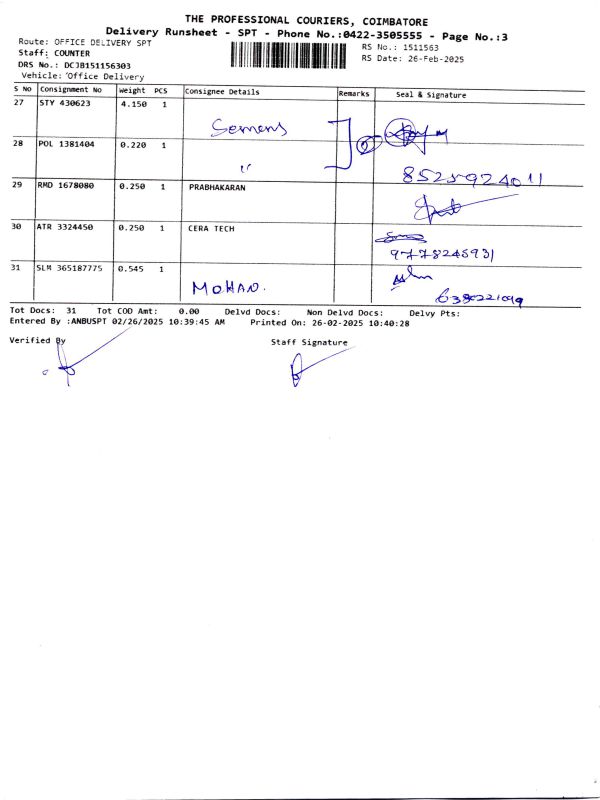 THE PROFESSIONAL COURIERS, COIMBATORE
Delivery Runsheet - SPT - Phone No.:0422-3505555 - Page No.:3
Route: OFFICE DELIVERY SPT
RS No.: 1511563
Staff: COUNTER
RS Date: 26-Feb-2025
DRS No.: DCJB151156303
Vehicle: Office Delivery
S No Consignment No Weight PCS Consignee Details Remarks Seal & Signature
27 STY 430623 4.150 1 Semens
28 POL 1381404 0.220 1 "
8525924011
29 RMD 1678080 0.250 1 PRABHAKARAN
30 ATR 3324450 0.250 1 CERA TECH
9778245931
31 SLM 365187775 0.545 1 MOHAN.
6380221099
Tot Docs: 31 Tot COD Amt: 0.00 Delvd Docs: Non Delvd Docs: Delvy Pts:
Entered By :ANBUSPT 02/26/2025 10:39:45 AM Printed On: 26-02-2025 10:40:28
Verified By Staff Signature